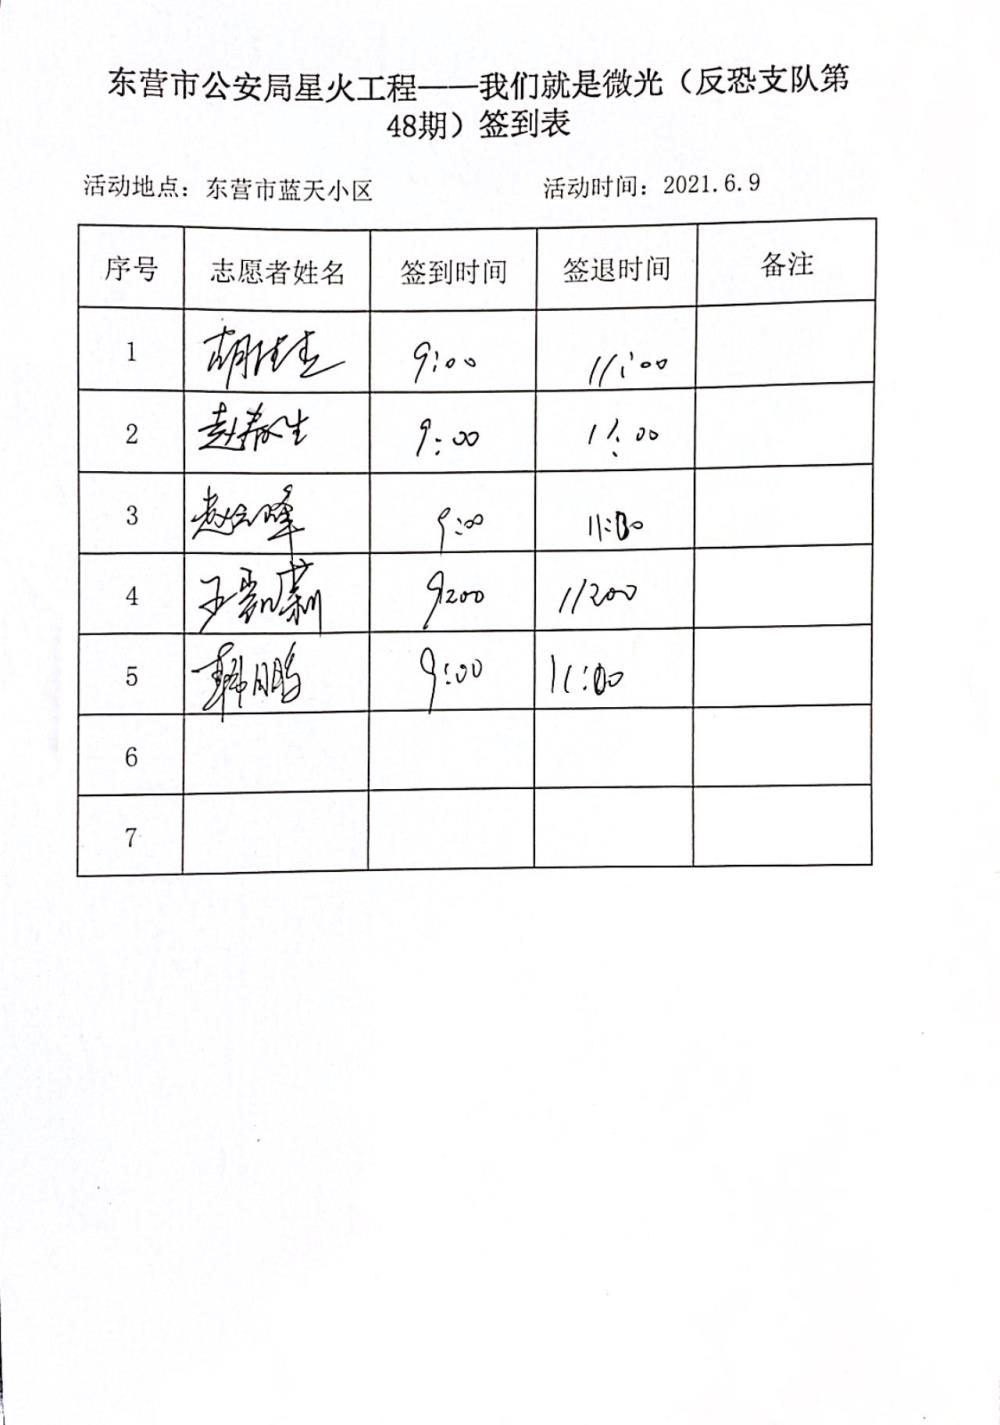 东营市公安局星火工程——我们就是微光（反恐支队第
48期）签到表
活动地点：东营市蓝天小区 活动时间：2021.6.9
序号 志愿者姓名 签到时间 签退时间 备注
1 胡佳杰 9:00 11:00
2 赵春生 9:00 11:00
3 赵云峰 9:00 11:00
4 王 9:00 11:00
5 韩鹏 9:00 11:00
6
7